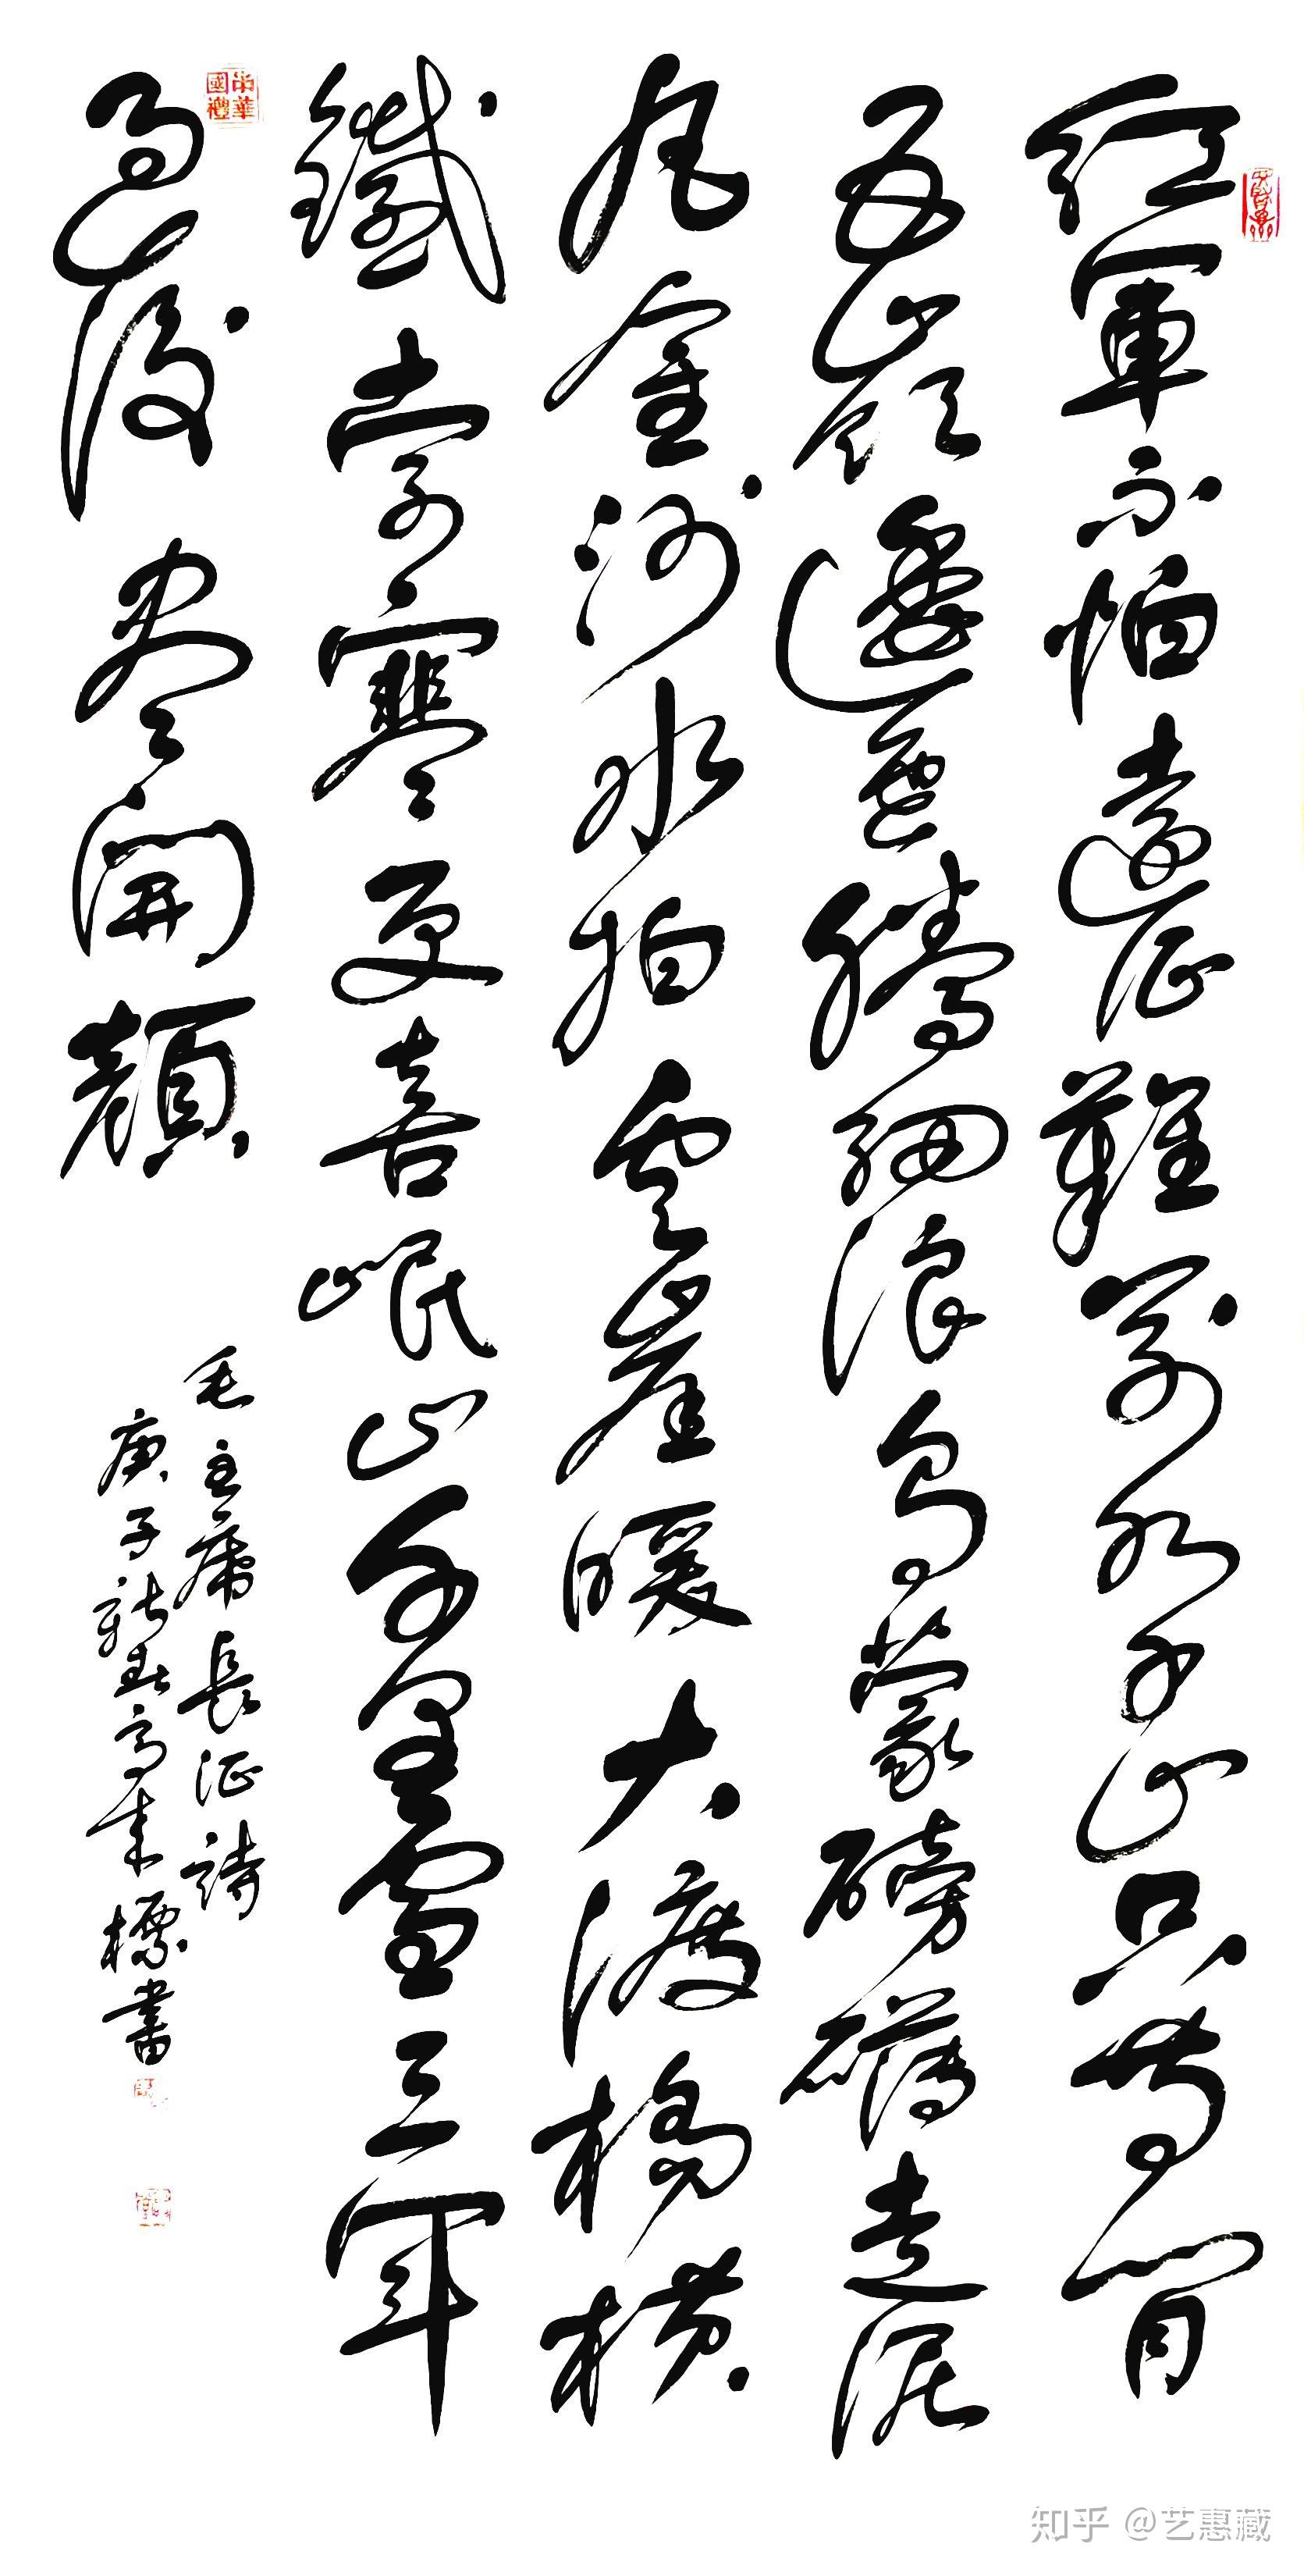 紅軍不怕遠征難萬水千山只等閒
五嶺逶迤騰細浪烏蒙磅礴走泥
丸金沙水拍雲崖暖大渡橋橫
鐵索寒更喜岷山千里雪三軍
過後盡開顏
毛主席長征詩
庚子新春高来標書
中華國禮
知乎 @艺惠藏